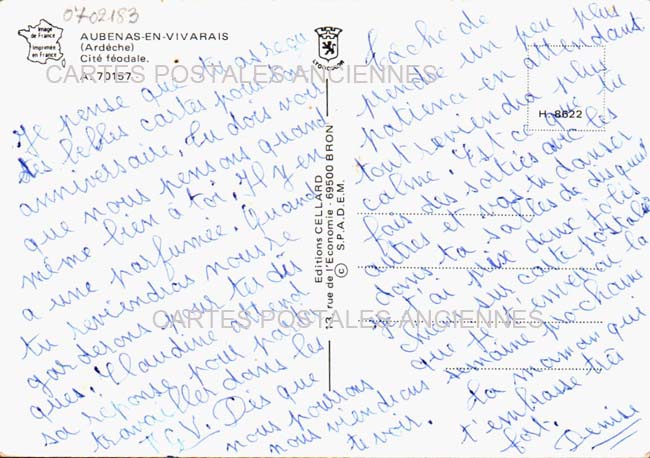 0702183
Image
de France
Imprimée
en France
AUBENAS-EN-VIVARAIS
(Ardèche)
Cité féodale.
A. 70157
LYONCOLOR
H. 8622
CARTES POSTALES ANCIENNES
Je pense que tu as reçu
des belles cartes pour ton
anniversaire. Tu dois voir
que nous pensons quand
même bien à toi. Il y en
a une parfumée. Quand
tu reviendras nous te
garderons pour tes dis
ques. Claudine attend
sa réponse pour
travailler dans les
P.G.V. Dès que
nous pourrons
nous viendrons
te voir.
Editions CELLARD
13, rue de l'Economie - 69500 BRON
© S.P.A.D.E.M.
tâche de
prendre un peu plus
patience en attendant
tout reviendra plus
calme. Est-ce que tu
fais des sorties avec les
autres et vas-tu danser
dans ta salle de disques
J'ai pris deux jolis
chiens sur carte postale
que je t'enverrai la
semaine prochaine
ta maman qui
t'embrasse très
fort. Denise
CARTES POSTALES ANCIENNES